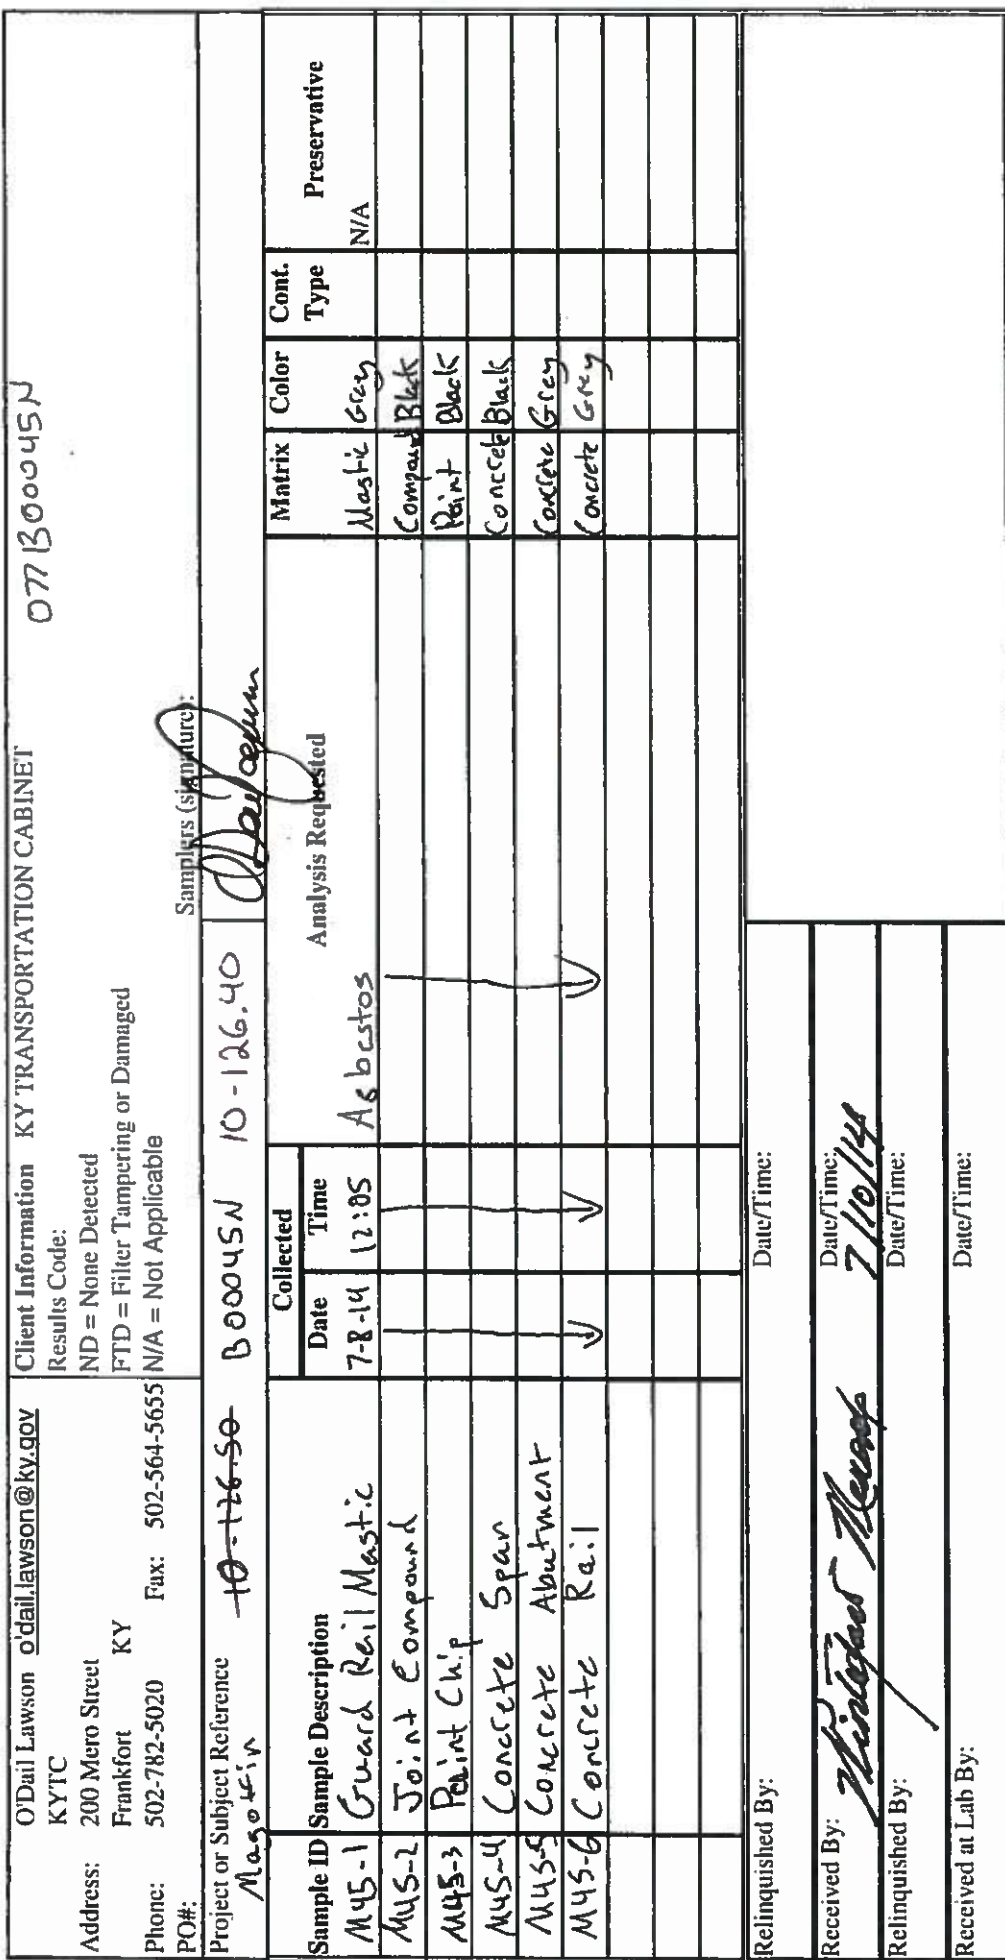 O'Dail Lawson o'dail.lawson@ky.gov
KYTC
Address: 200 Mero Street
Frankfort KY
Phone: 502-782-5020 Fax: 502-564-5655
PO#:
Client Information KY TRANSPORTATION CABINET
077B00045N
Results Code:
ND = None Detected
FTD = Filter Tampering or Damaged
N/A = Not Applicable
Samplers (signature):
Project or Subject Reference 10-126.50 B0045N 10-126.40
Magoffin
Sample ID Sample Description Collected Date Time Analysis Requested Matrix Color Cont. Type Preservative
M45-1 Guard Rail Mastic 7-8-14 12:05 Asbestos Mastic Grey N/A
M45-2 Joint Compound Compound Black
M45-3 Paint Chip Paint Black
M45-4 Concrete Span Concrete Black
M45-5 Concrete Abutment Concrete Grey
M45-6 Concrete Rail Concrete Grey
Relinquished By: Date/Time:
Received By: Date/Time: 7/10/14
Relinquished By: Date/Time:
Received at Lab By: Date/Time: